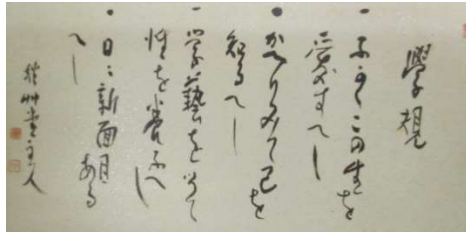 學規
一 ふかくこの生を
愛すべし
一 かへりみて己を
知るべし
一 学藝を以て
性を養ふべし
一 日々新面目ある
べし
秋艸堂主人